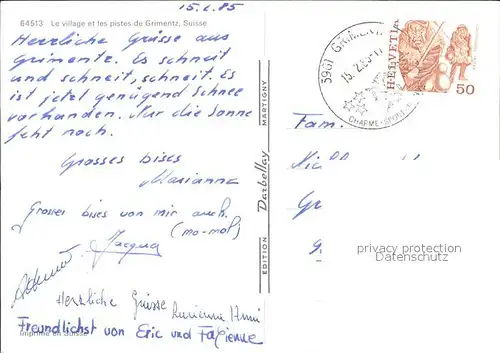 15.2.85
64513 Le village et les pistes de Grimentz, Suisse
Herzliche Grüsse aus
Grimentz. Es schneit
und schneit, schneit. Es
ist jetzt genügend Schnee
vorhanden. Nur die Sonne
feht noch.
Grosses bises
Marianne
Grosses bises von mir auch.
(mo-mo!)
Jacqua
Herzliche Grüsse
Freundlichst von Eric und Fabienne
Imprimé en Suisse
EDITION Darbellay MARTIGNY
3961 GRIMENTZ
15.2.85-17
CHARME-SPORT
HELVETIA
50
Fam.
privacy protection
Datenschutz